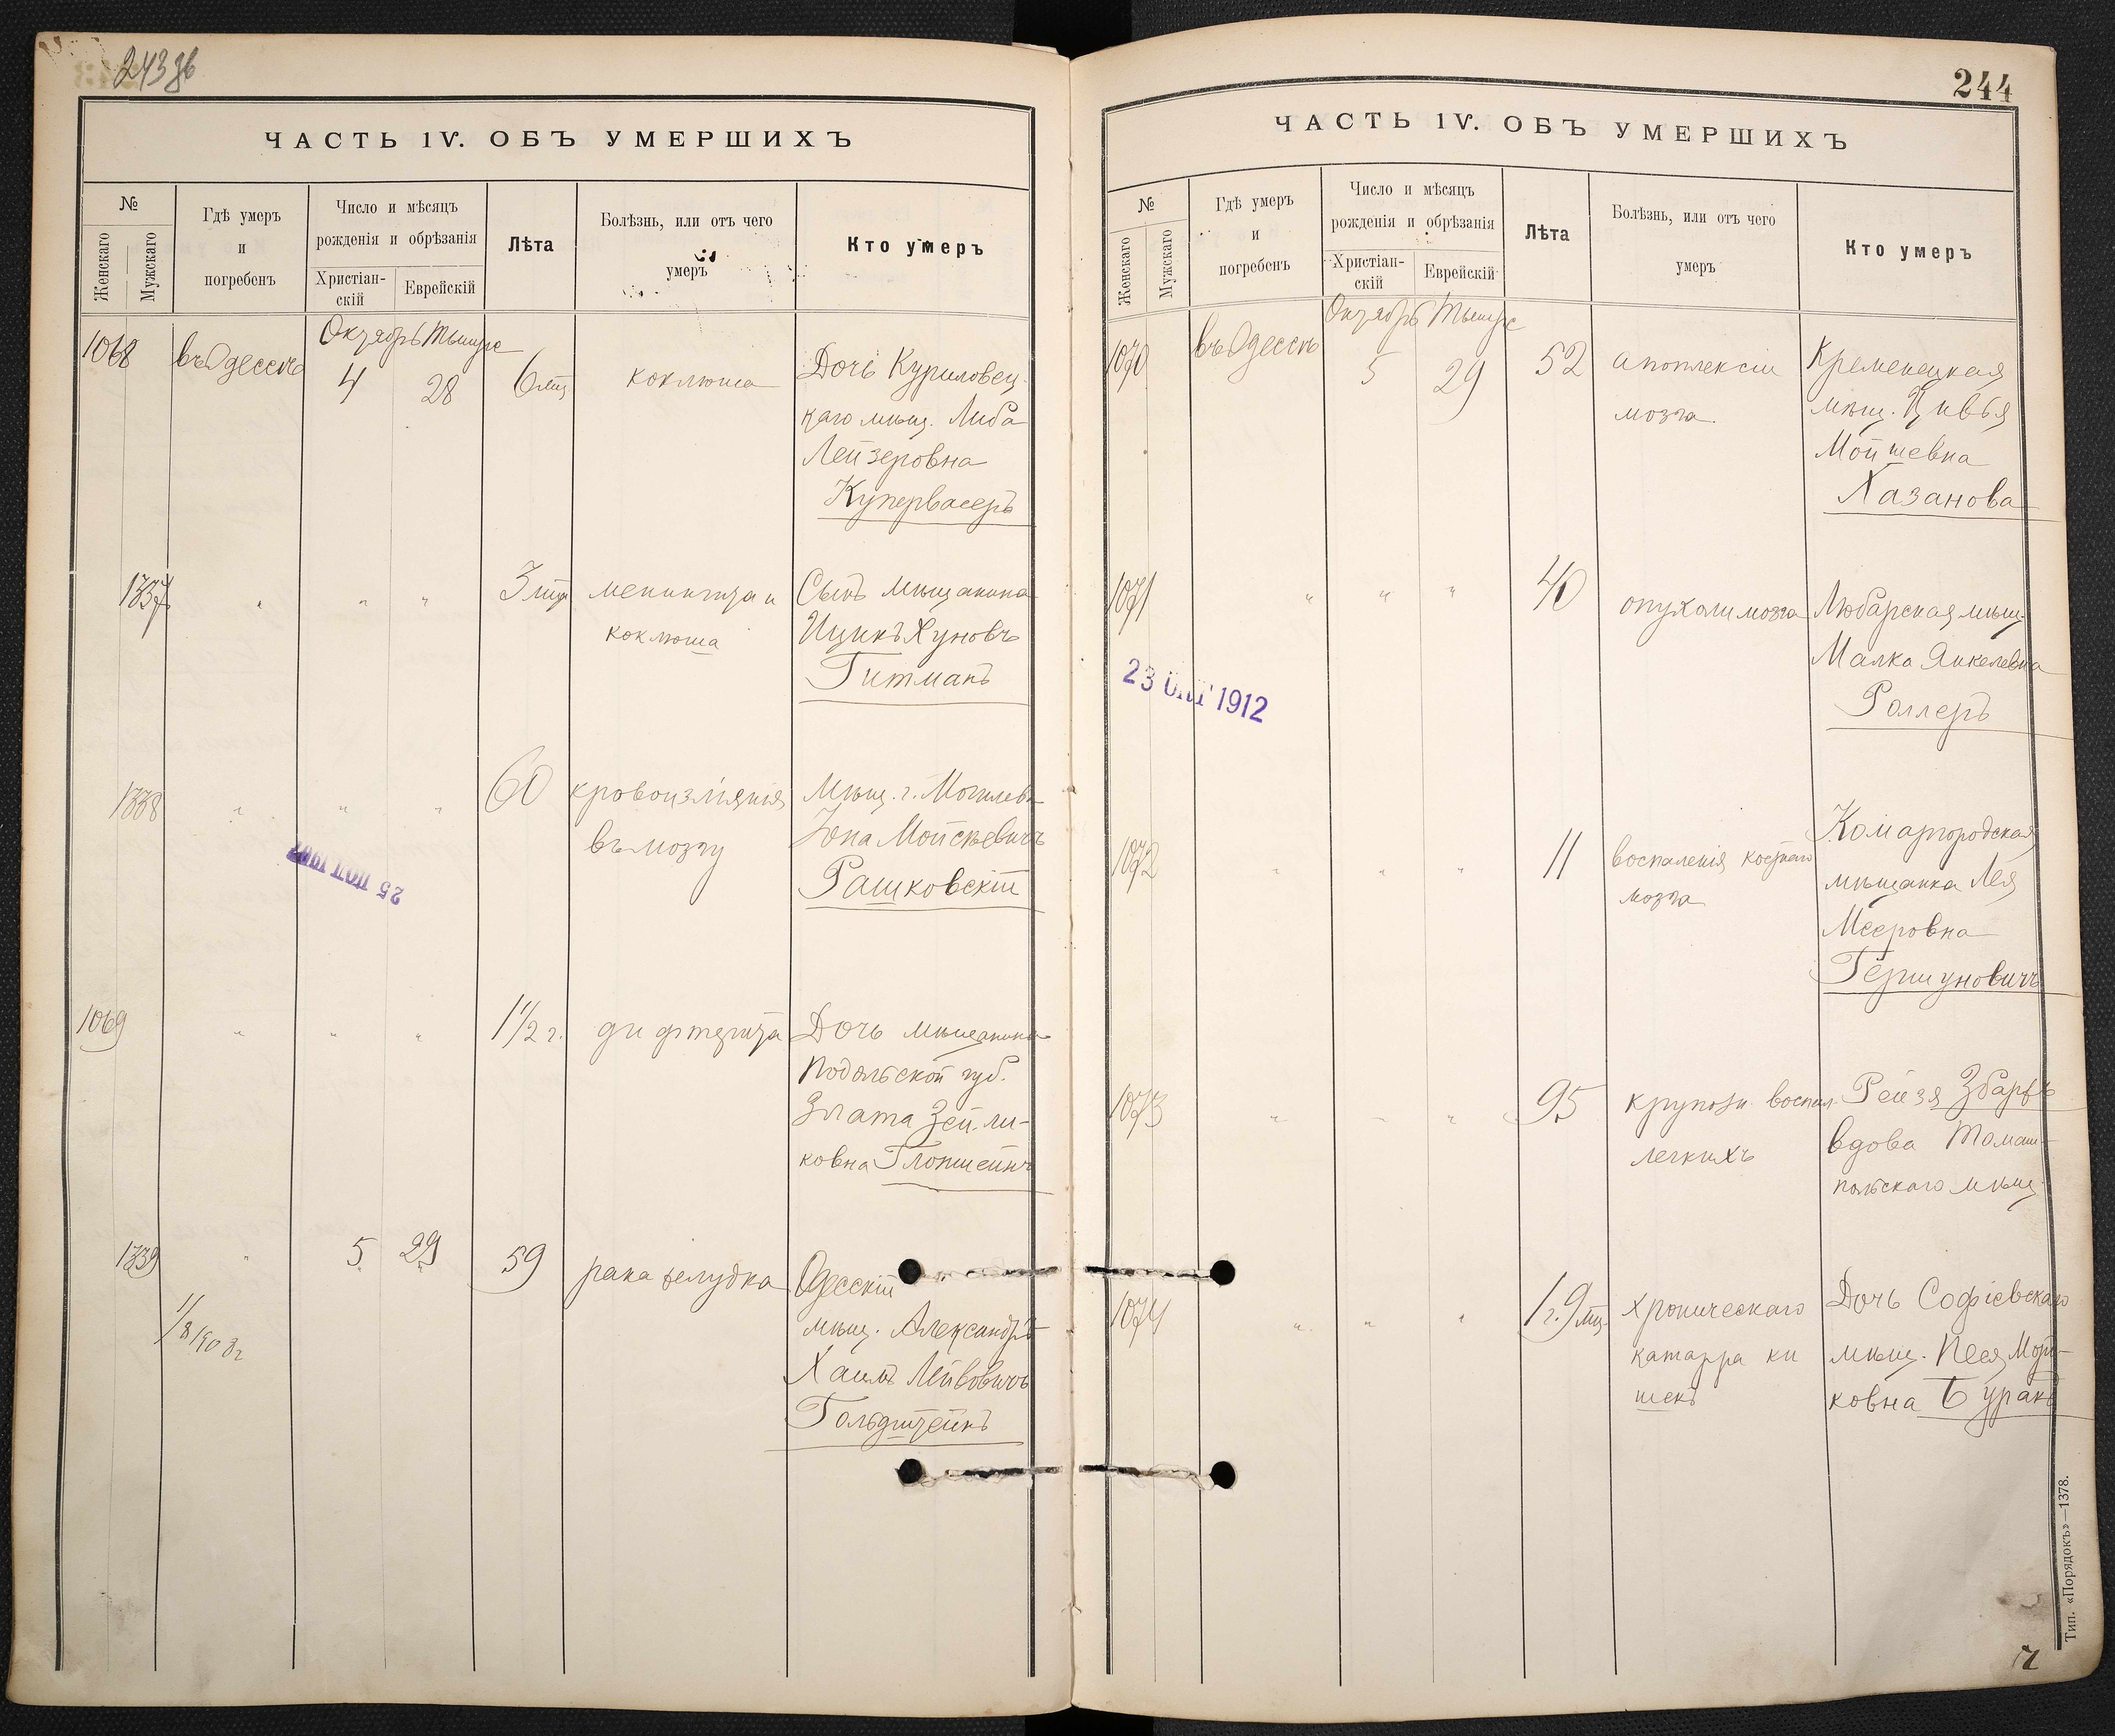 243 зв
ЧАСТЬ IV. ОБЪ УМЕРШИХЪ
№
Женскаго
Мужскаго
Гдѣ умеръ
и
погребенъ
Число и мѣсяцъ
рожденія и обрѣзанія
Христіан-
скій
Еврейскій
Лѣта
Болѣзнь, или отъ чего
умеръ
Кто умеръ
Октябрь Тышре
1068 въ Одессѣ 4 28 6 мц коклюша Дочь Куриловец-
каго мѣщ. Либа
Лейзеровна
Купервасеръ
1337 " " " 3 мца менингита и Сынъ мѣщанина
коклюша Ицикъ Хуновъ
Гитманъ
1338 " " " 60 кровоизліянія Мѣщ. г. Могилева
въ мозгу Іона Мойсѣевичъ
Рашковскій
1069 " " " 1 1/2 г. дифтерита Дочь мѣщанина
Подольской губ.
Злата Зей-ли-
ковна Глопшейнъ
1339 " 5 29 59 рака желудка Одесскій
мѣщ. Александръ
Хаимъ Лейвовичъ
Гольдштейнъ
244
ЧАСТЬ IV. ОБЪ УМЕРШИХЪ
№
Женскаго
Мужскаго
Гдѣ умеръ
и
погребенъ
Число и мѣсяцъ
рожденія и обрѣзанія
Христіан-
скій
Еврейскій
Лѣта
Болѣзнь, или отъ чего
умеръ
Кто умеръ
Октябрь Тышре
1070 въ Одессѣ 5 29 52 апоплексіи Кременецкая
мозга. мѣщ. Цивья
Мойшевна
Хазанова
1071 " " " 40 опухоли мозга Любарская мѣщ.
Малка Янкелевна
Роллеръ
23 ОКТ 1912
1072 " " " 11 воспаленія костнаго Комаргородская
мозга мѣщанка Лея
Мееровна
Гершуновичъ
1073 " " " 95 крупозн. воспал. Рейзя Збаръ
легкихъ вдова Томаш-
польскаго мѣщ.
1074 " " " 1 г. 9 мц. хроническаго Дочь Софіевскаго
катарра ки мѣщ. Песя Морт-
шекъ ковна Буракъ
Тип. «Порядокъ»—1378.